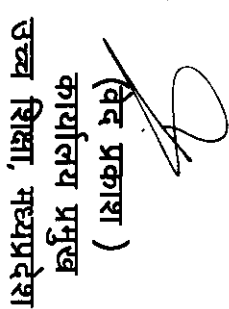 ( वेद प्रकाश )
कार्यालय प्रमुख
उच्च शिक्षा, मध्यप्रदेश